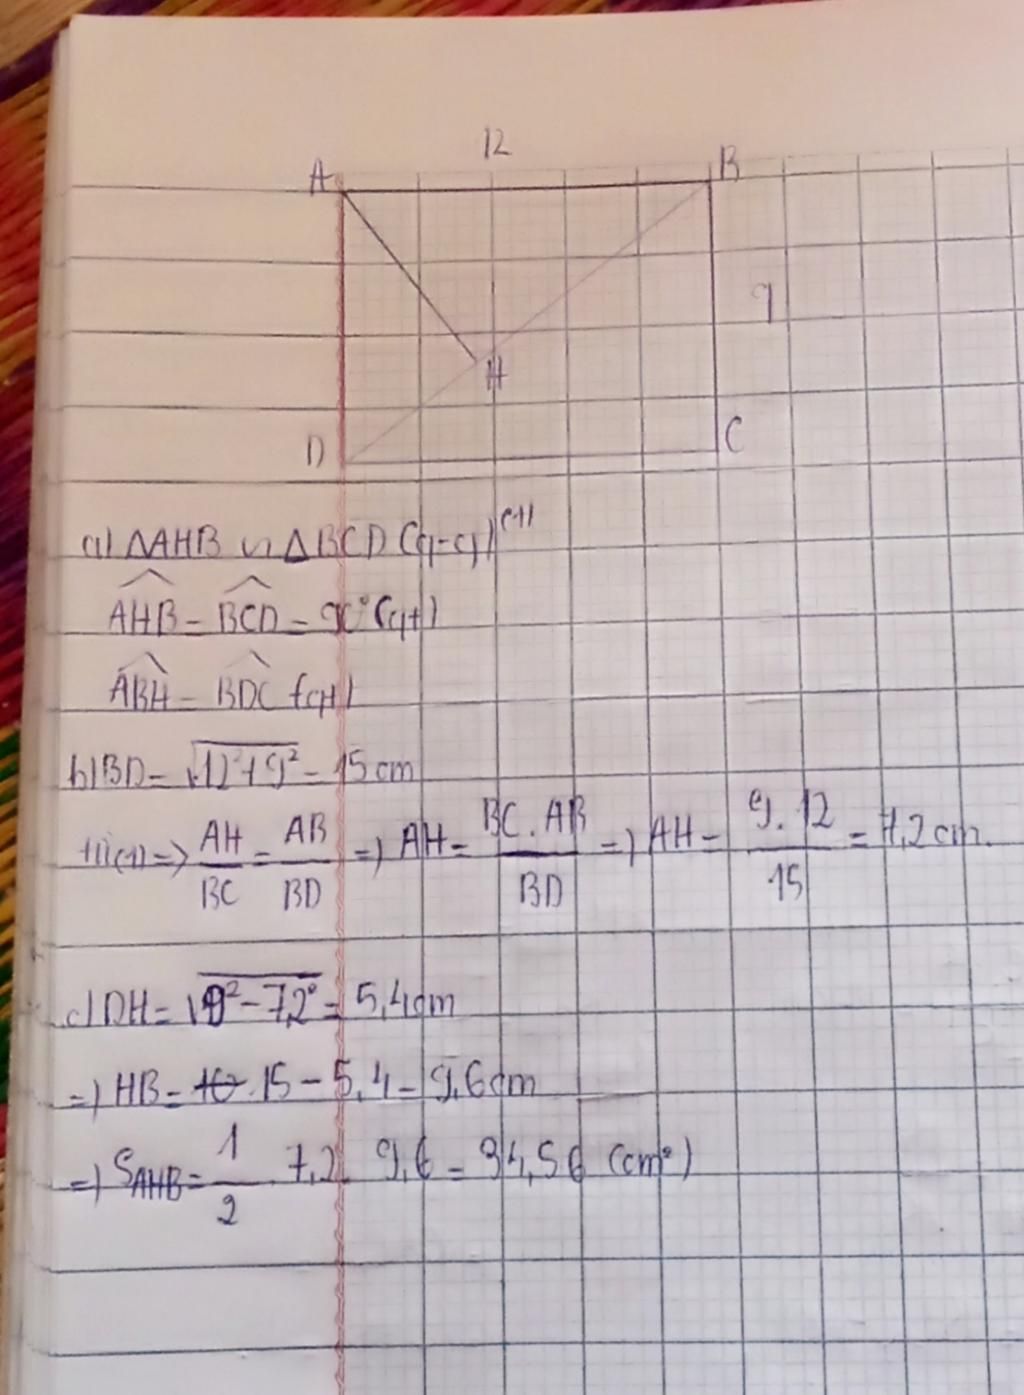 12
A B
9
H
D C
a) ΔAHB ∽ ΔBCD (g-g) (1)
AHB = BCD = 90° (gt)
ABH = BDC (gt)
b) BD = √12²+9² = 15 cm
Từ (1) => AH/BC = AB/BD => AH = BC.AB/BD => AH = 9.12/15 = 7,2 cm.
c) DH = √9²-7,2² = 5,4cm
=> HB = 15 - 5,4 = 9,6cm
=> S_AHB = 1/2 . 7,2 . 9,6 = 34,56 (cm²)